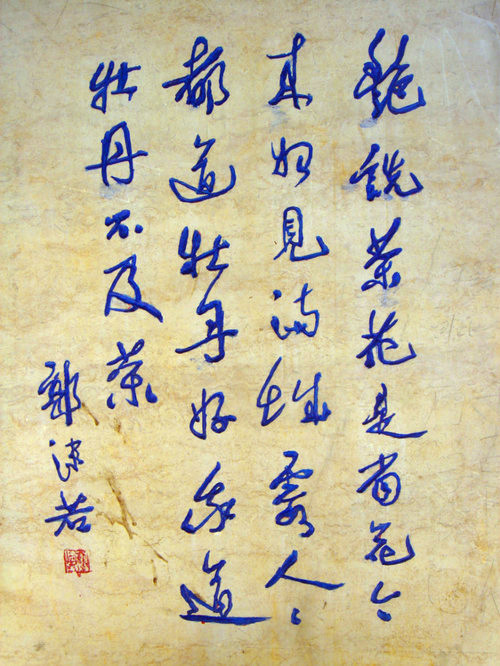 艷說茶花是省花今
来始見滿城霞人〻
都道牡丹好我道
牡丹不及茶
郭沫若